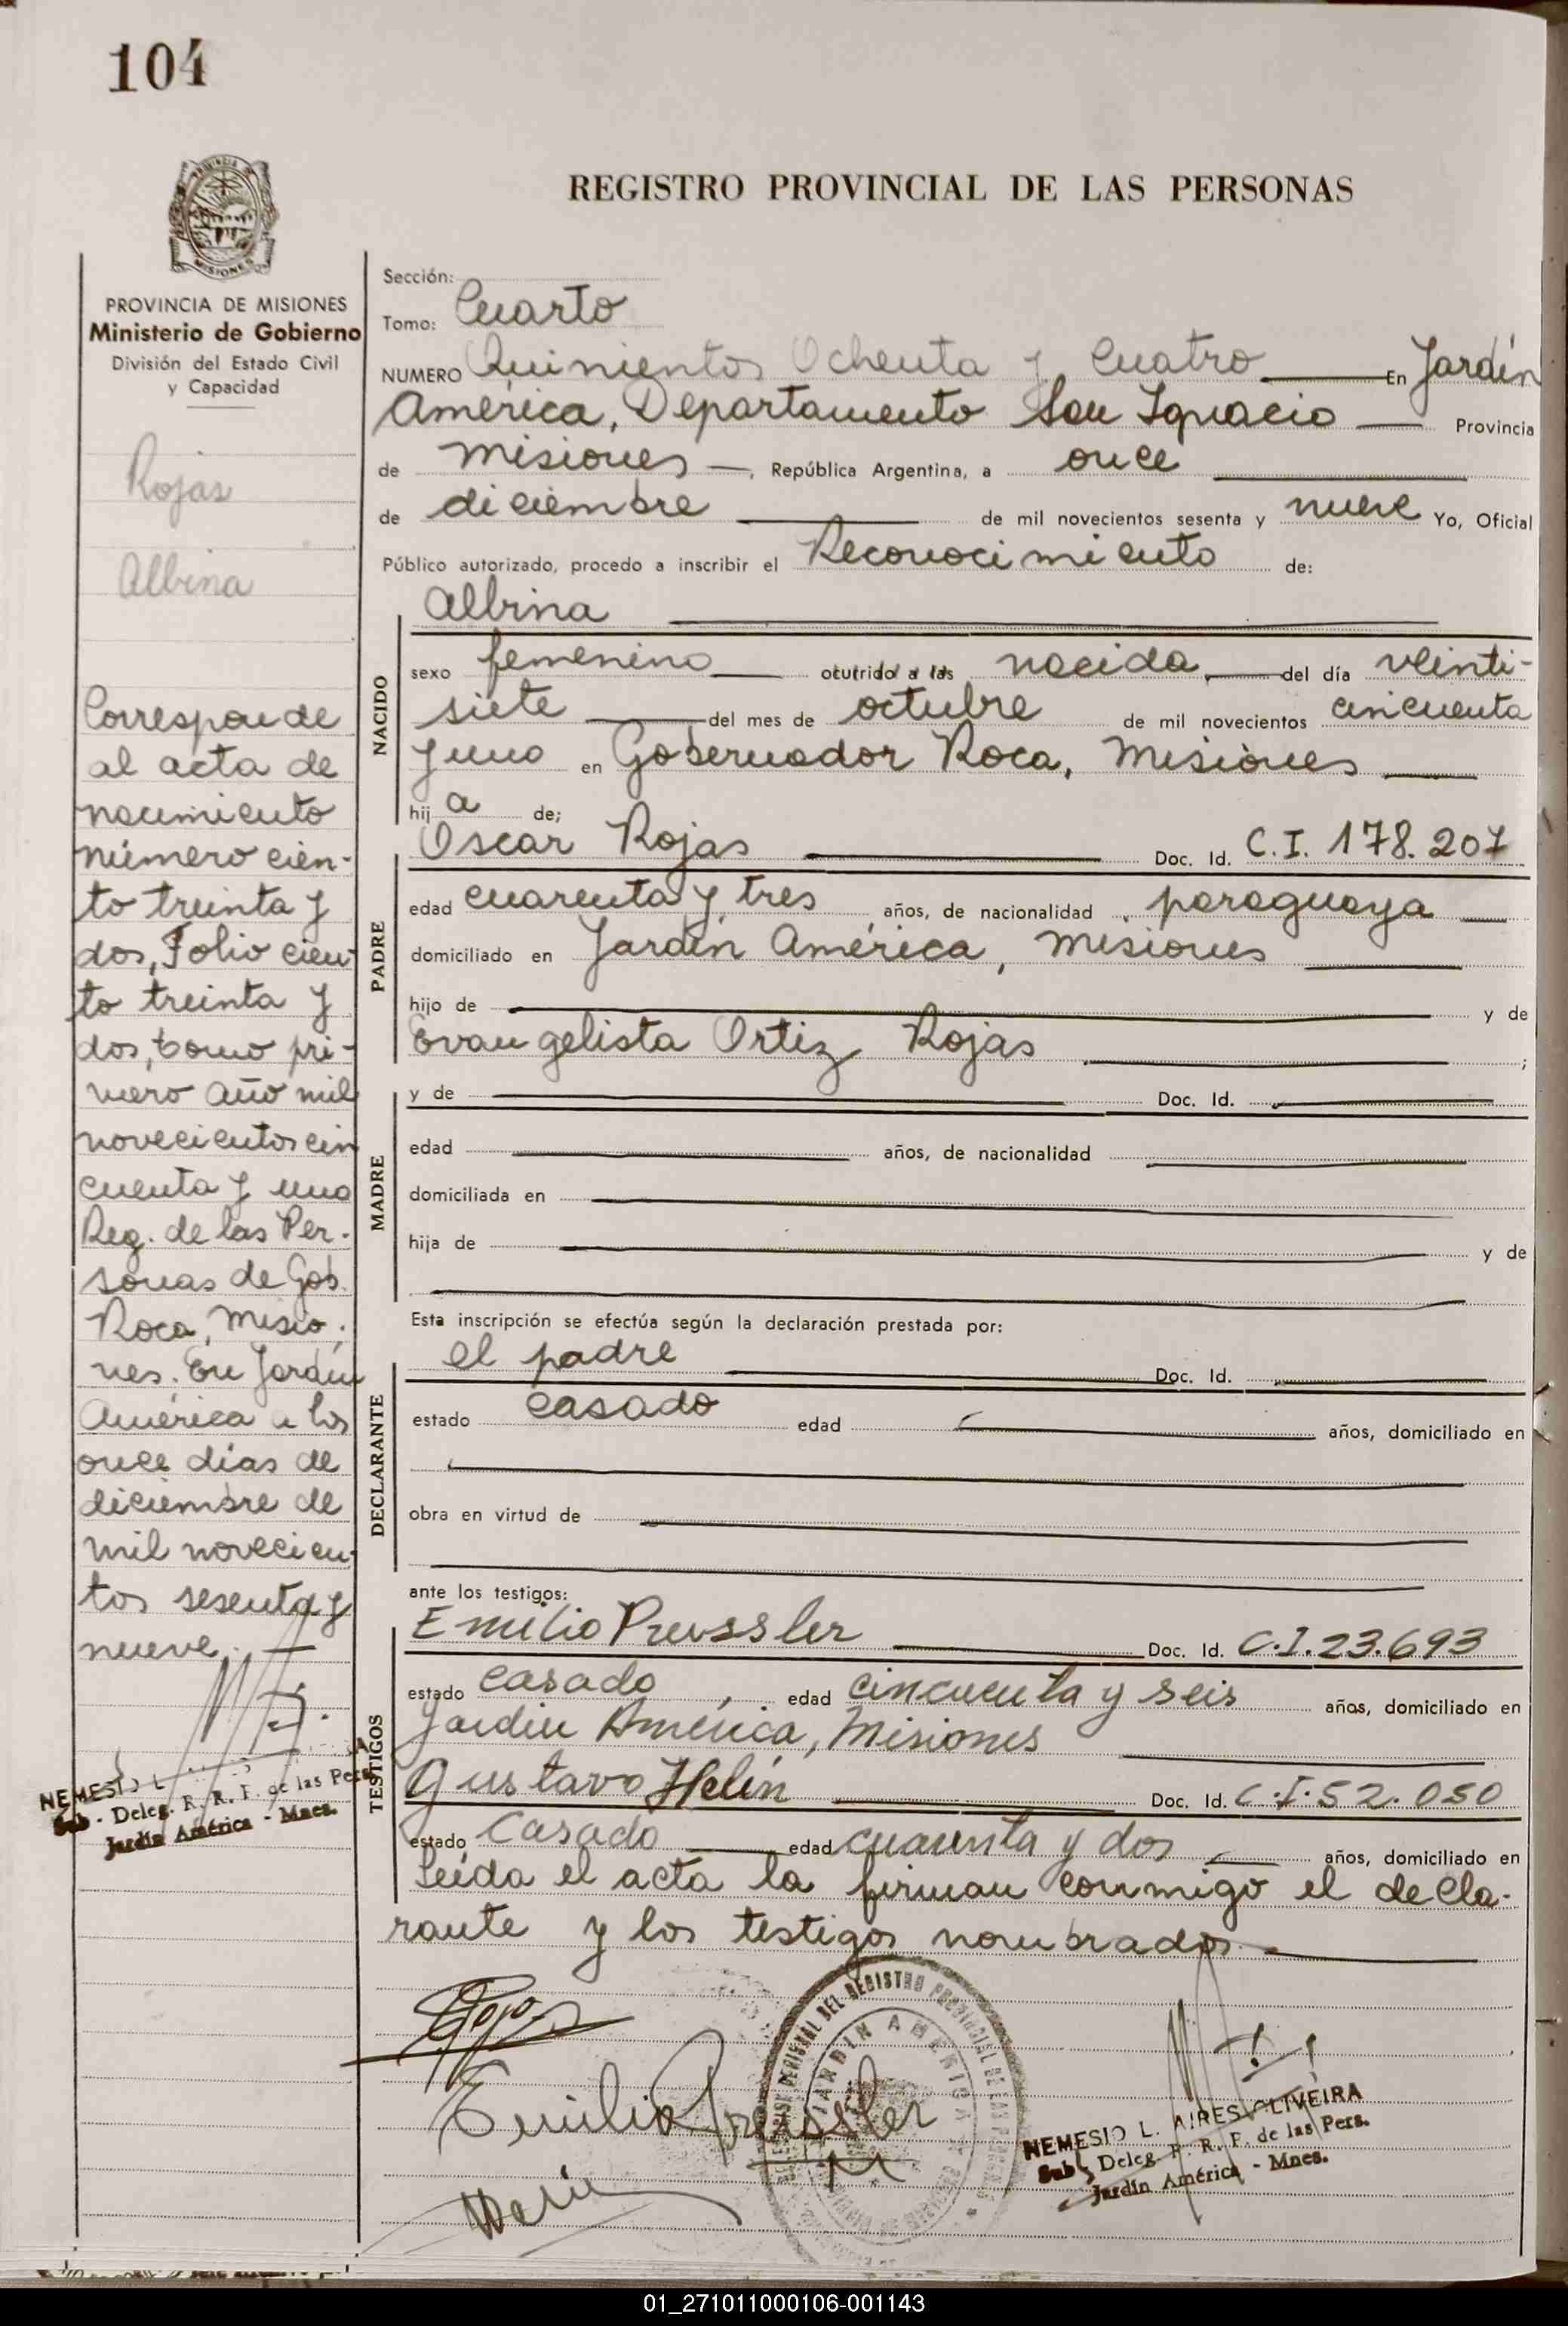 104
REGISTRO PROVINCIAL DE LAS PERSONAS
PROVINCIA DE MISIONES
Ministerio de Gobierno
División del Estado Civil
y Capacidad
Rojas
Albina
Corresponde
al acta de
nacimiento
número cien-
to treinta y
dos, Folio cien-
to treinta y
dos, tomo pri-
mero año mil
novecientos cin
cuenta y uno
Reg. de las Per-
sonas de Gob.
Roca, Misio-
nes. En Jardín
América a los
once días de
diciembre de
mil novecien-
tos sesenta y
nueve.
NEMESIO L.
Sub - Deleg. R. R. P. de las Pers.
Jardín América - Mnes.
Sección:
Tomo: Cuarto
NUMERO Quinientos Ochenta y Cuatro En Jardín
América, Departamento San Ignacio Provincia
de Misiones, República Argentina, a once
de diciembre de mil novecientos sesenta y nueve Yo, Oficial
Público autorizado, procedo a inscribir el Reconocimiento de:
Albina
NACIDO
sexo femenino ocurrido a las nacida, del día veinti-
siete del mes de octubre de mil novecientos cincuenta
y uno en Gobernador Roca, Misiones
hij a de;
Oscar Rojas Doc. Id. C.I. 178.207
PADRE
edad cuarenta y tres años, de nacionalidad paraguaya
domiciliado en Jardín América, Misiones
hijo de y de
Evangelista Ortiz Rojas ;
MADRE
y de Doc. Id.
edad años, de nacionalidad
domiciliada en
hija de y de
Esta inscripción se efectúa según la declaración prestada por:
el padre Doc. Id.
DECLARANTE
estado casado edad años, domiciliado en
obra en virtud de
ante los testigos:
Emilio Preussler Doc. Id. C.I.23.693
TESTIGOS
estado casado, edad cincuenta y seis años, domiciliado en
Jardín América, Misiones
Gustavo Helín Doc. Id. C.I.52.050
estado Casado edad cuarenta y dos años, domiciliado en
Leída el acta la firman conmigo el decla-
rante y los testigos nombrados.-
Rojas
Emilio Preussler
REGISTRO PROVINCIAL DE LAS PERSONAS
JARDIN AMERICA
NEMESIO L. AIRES OLIVEIRA
Sub Deleg. R. R. P. de las Pers.
Jardín América - Mnes.
01_271011000106-001143